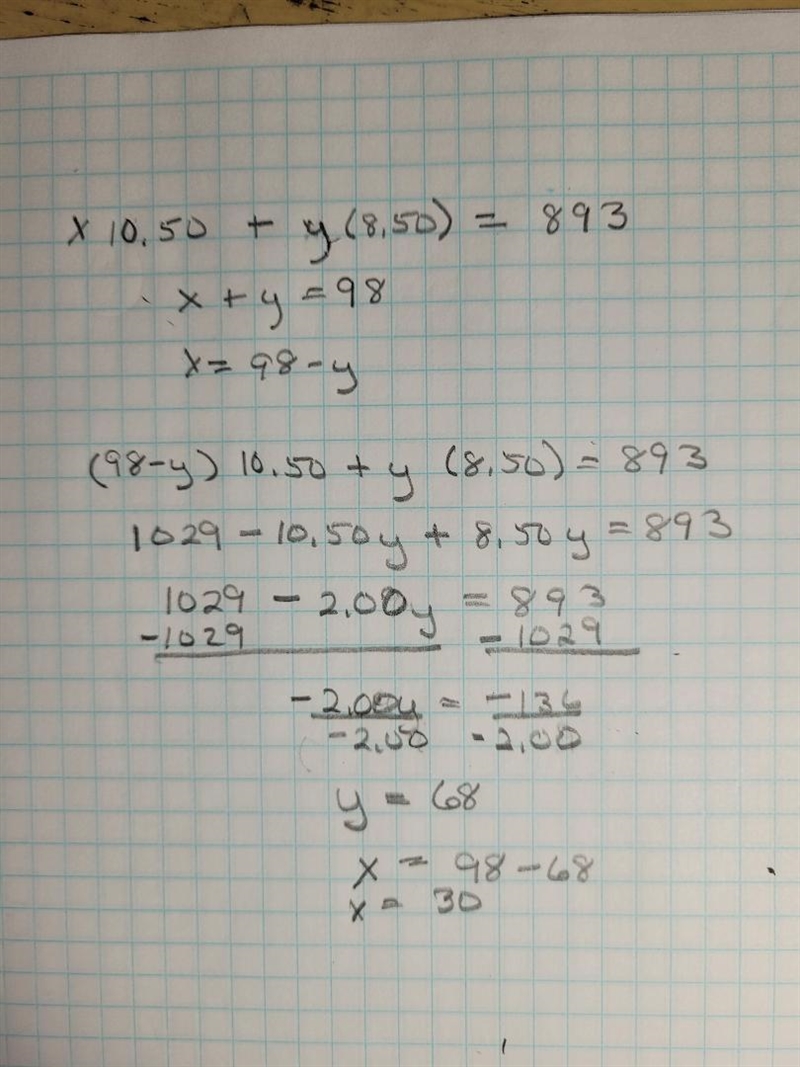 x 10.50 + y (8.50) = 893
x + y = 98
x = 98 - y
(98 - y) 10.50 + y (8.50) = 893
1029 - 10.50y + 8.50y = 893
1029 - 2.00y = 893
-1029 -1029
-2.00y = -136
-2.00 -2.00
y = 68
x = 98 - 68
x = 30